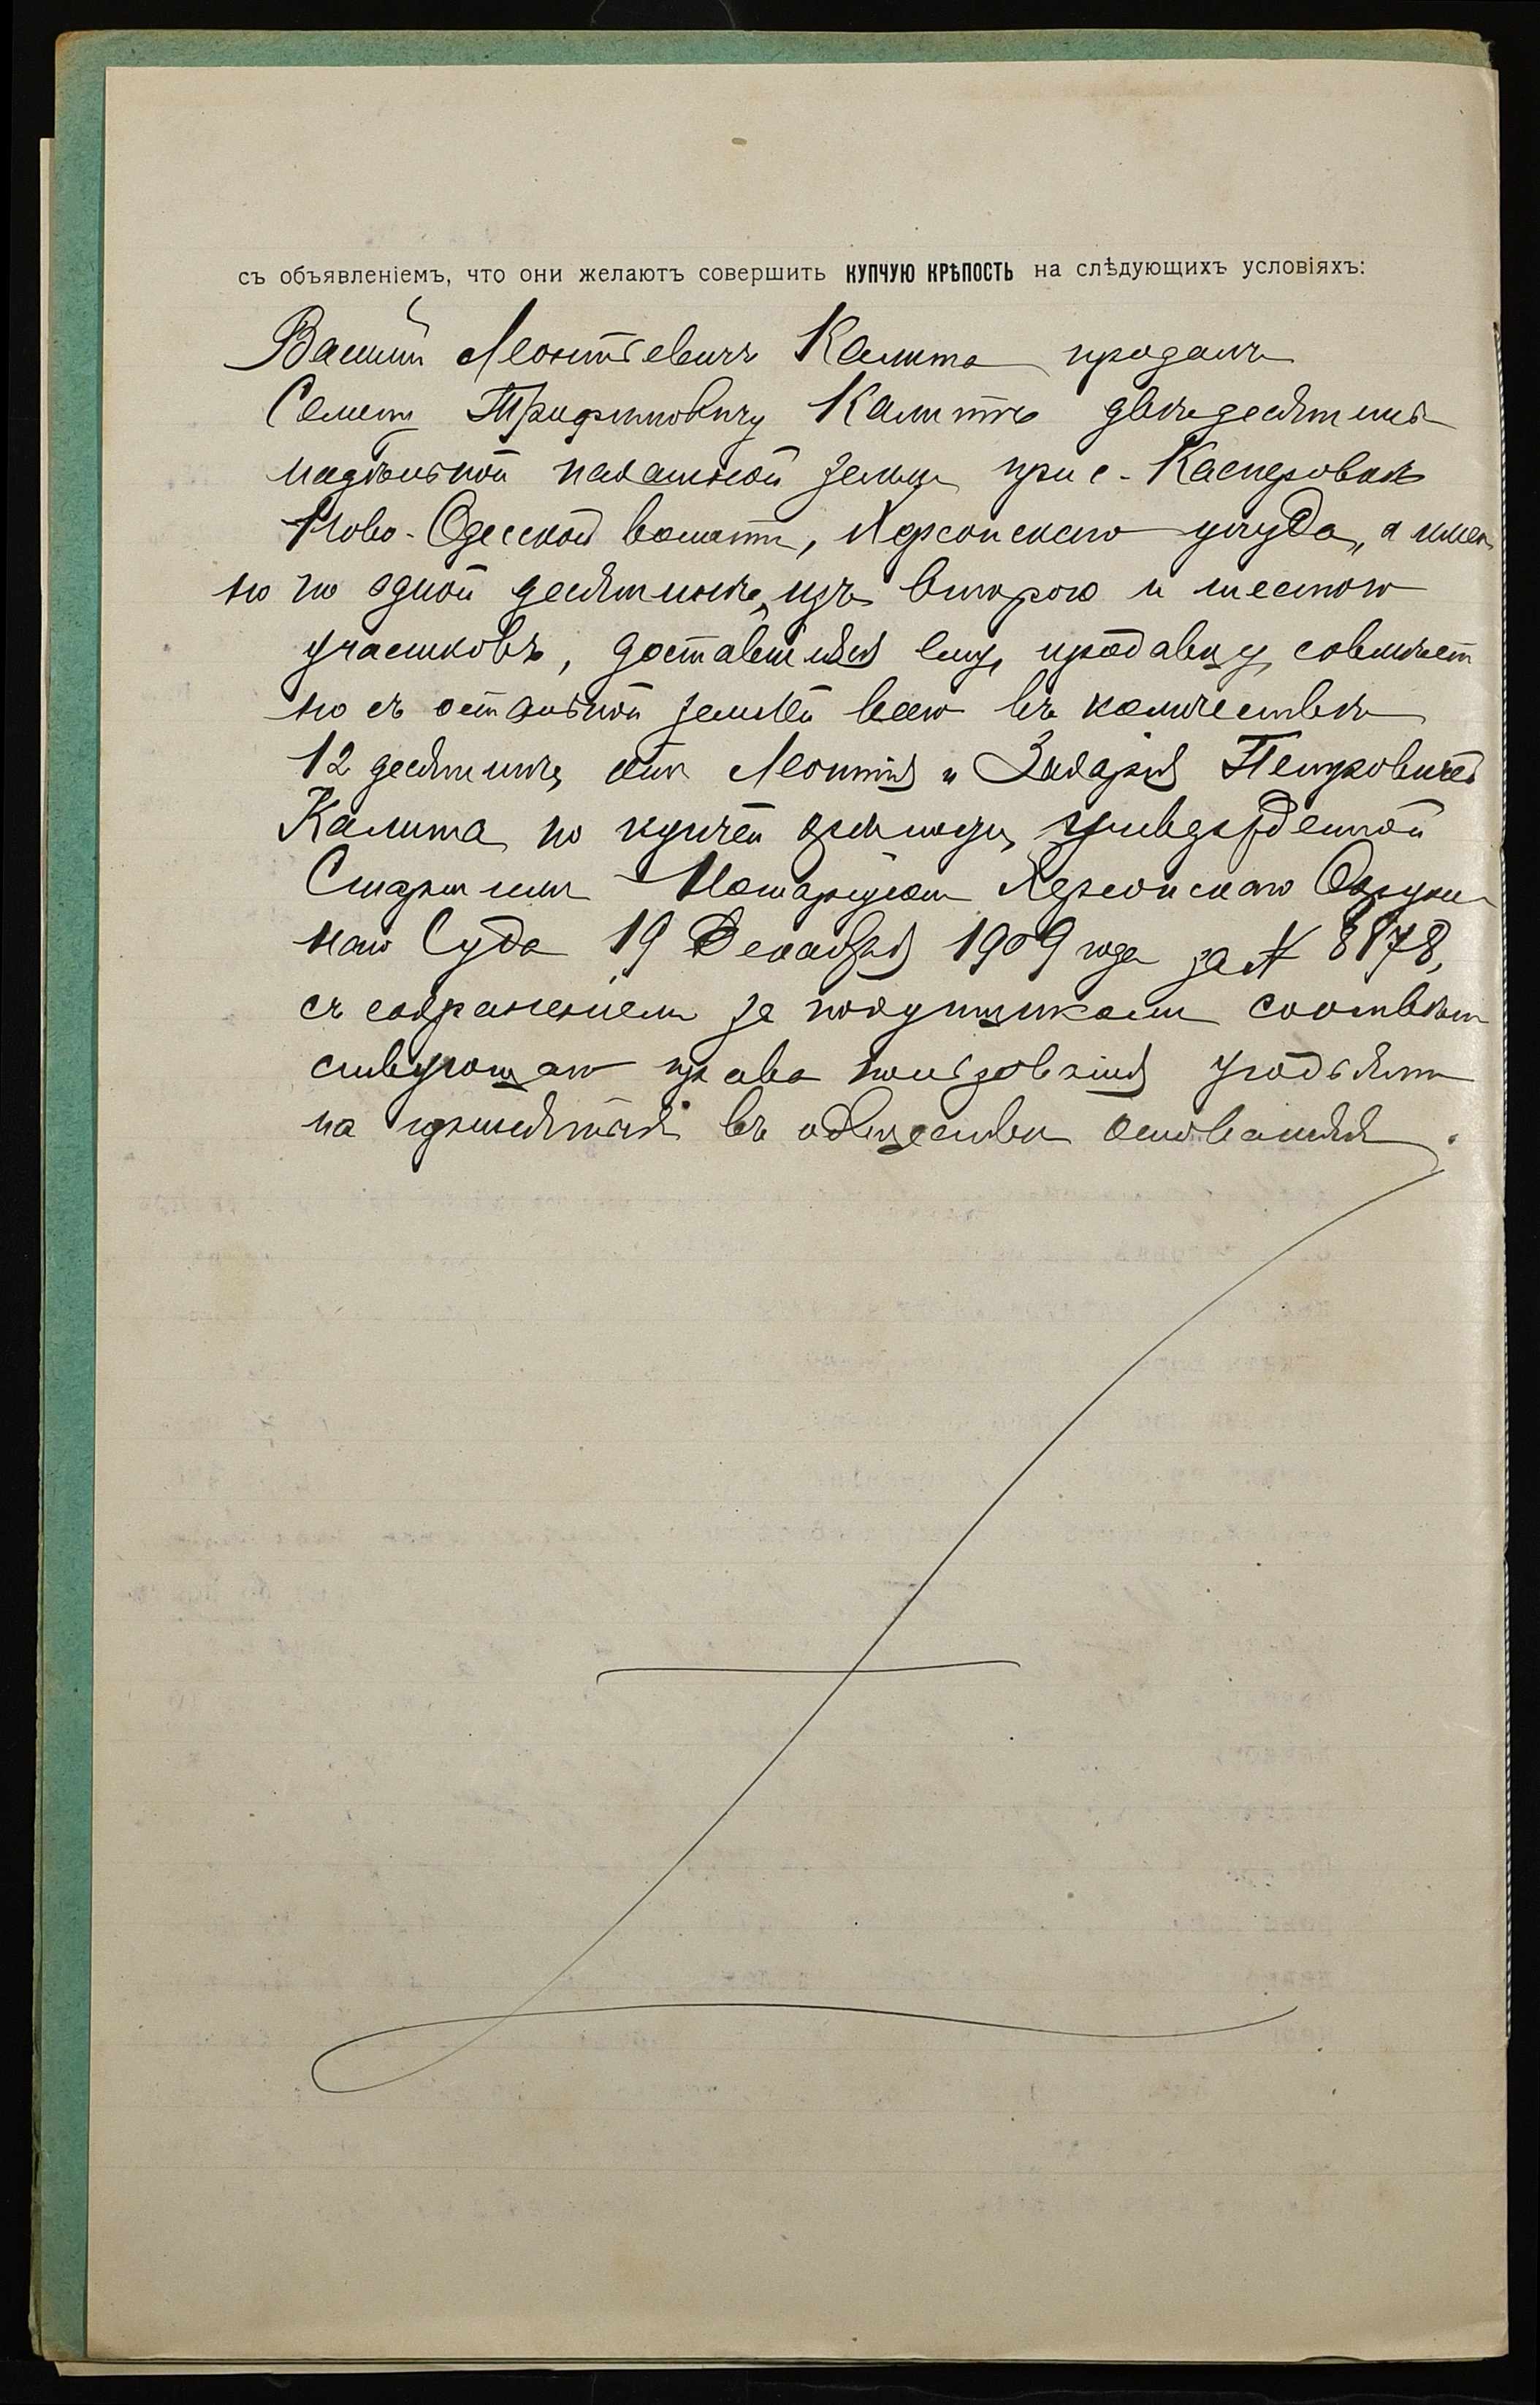 съ объявленіемъ, что они желаютъ совершить КУПЧУЮ КРѢПОСТЬ на слѣдующихъ условіяхъ:
Василій Леонтіевичъ Калита продалъ
Семену Трифоновичу Калитѣ двѣ десятины
надѣльной пахатной земли при с. Касперовкѣ
Ново-Одесской волости, Херсонскаго уѣзда, а имен
но по одной десятинѣ, изъ второго и шестого
участковъ, доставшіяся ему, продавцу, совмѣст
но съ остальной землей всего въ количествѣ
12 десятинъ, отъ Леонтія и Захарія Петровичей
Калита по купчей крѣпости, утвержденной
Старшимъ Нотаріусомъ Херсонскаго Окруж
наго Суда 19 Декабря 1909 года за № 8878,
съ сохраненіемъ за покупщикомъ соотвѣт
ствующаго права пользованія угодьями
на принятыхъ въ обществѣ основаніяхъ.